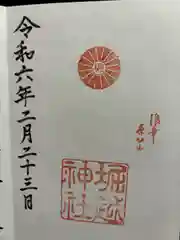 令和六年二月二十三日
堀越
神社